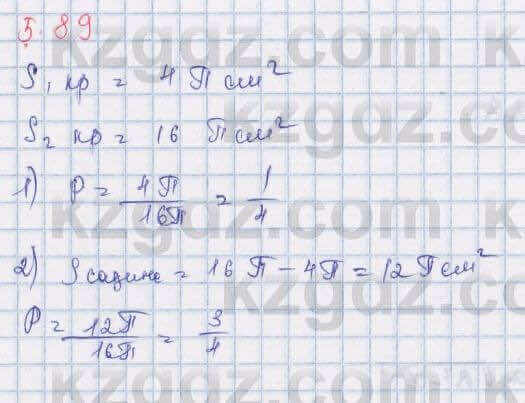 5.89
S₁ кр = 4π см²
S₂ кр = 16 π см²
1) P = 4π/16π = 1/4
2) S = 16π - 4π = 12π см²
P = 12π/16π = 3/4
kzgdz.com